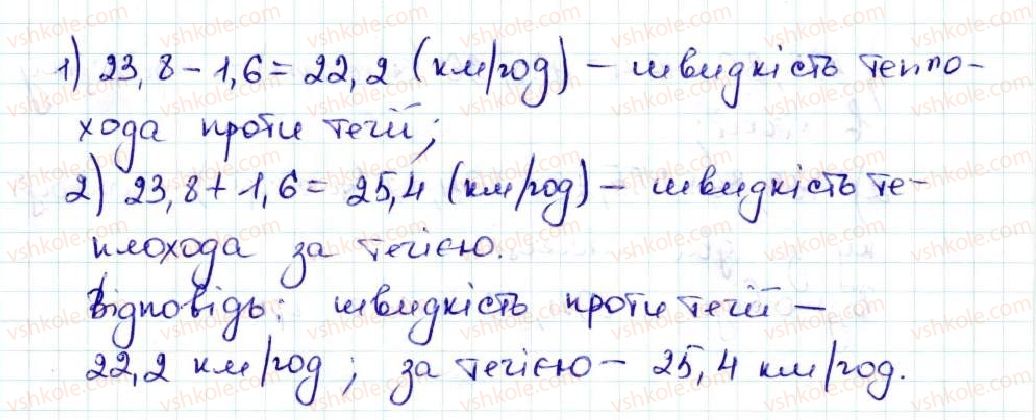 1) 23,8 - 1,6 = 22,2 (км/год) - швидкість тепло-
хода проти течії;
2) 23,8 + 1,6 = 25,4 (км/год) - швидкість те-
плохода за течією.
Відповідь: швидкість проти течії -
22,2 км/год; за течією - 25,4 км/год.